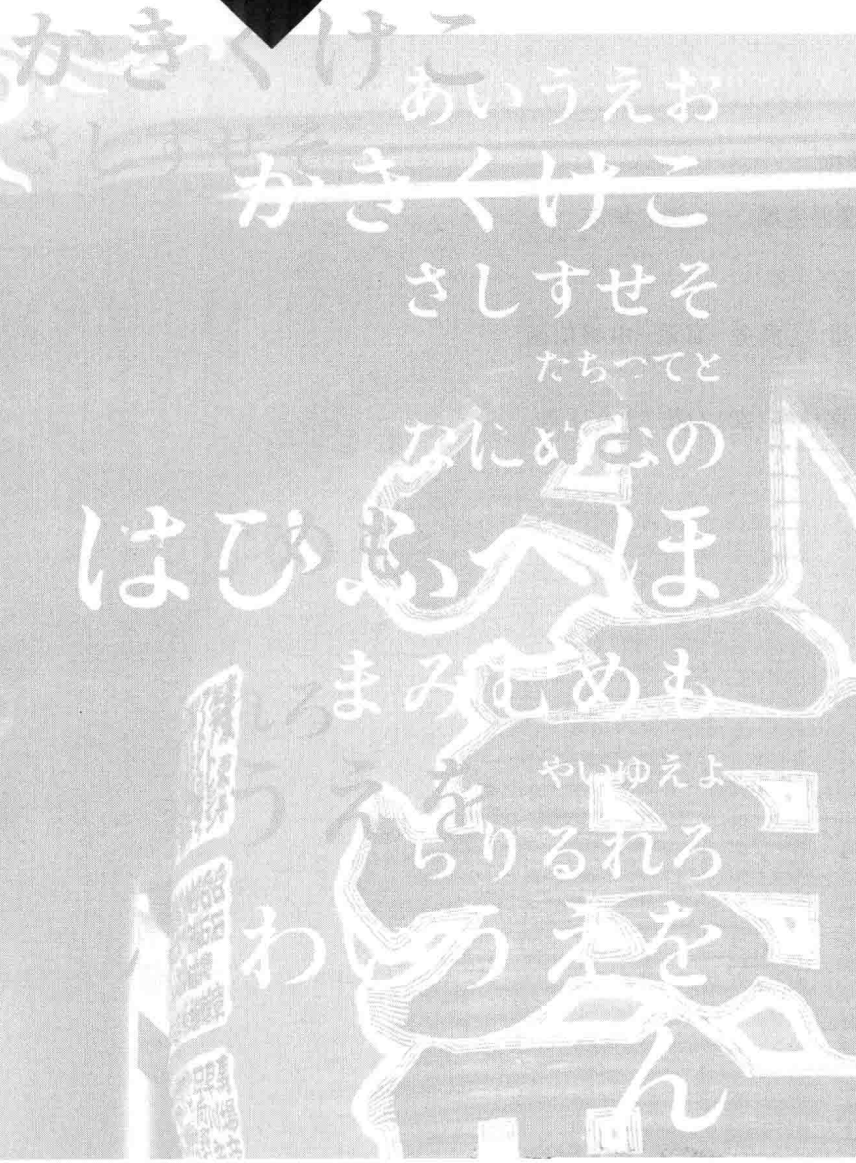 かきくけこ
さしすせそ
あいうえお
かきくけこ
さしすせそ
たちつてと
なにぬねの
はひふへほ
まみむめも
れろ
やいゆえよ
うえを
らりるれろ
わゐうゑを
ん